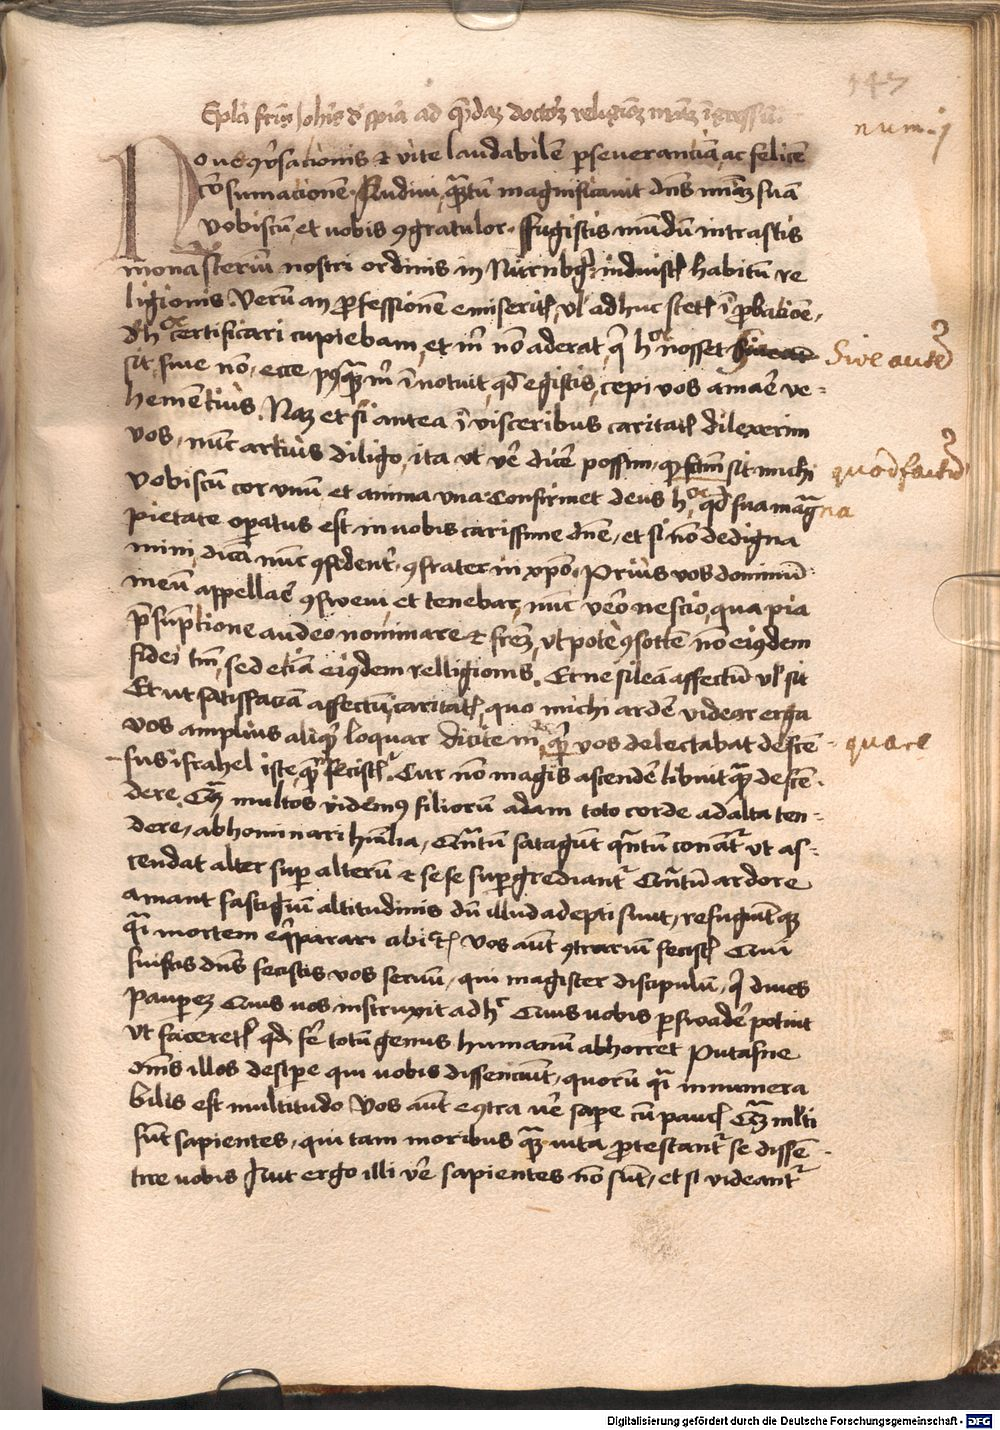 147
num. j
Epla fris Johis d spia ad quedaz doctorez religionez nraz ingressu
Noue conversacionis et vite laudabilem perseueranciam, ac felicem
consumacionem. Audiui, quantum magnificauit dns miaz suam
vobiscum, et uobis congratulor. Ffugistis mundum intrastis
monasterium nostri ordinis in Nurnbg induistis habitum re
ligionis. Verum an professionem emiseritis, vel adhuc stetis in probatione,
de hoc certificari cupiebam, et mihi non aderat, qui hoc nosset Siue autem
sit, siue non, ecce postquam mihi innotuit, quod egistis, cepi vos amare ve-
hementius. Nam et si antea in visceribus caritatis dilexerim
vos, nunc artius diligo, ita ut vere dicere possim, quod factum sit michi
vobiscum cor vnum, et anima vna. Confirmet deus hoc, quod sua magna
pietate operatus est in uobis carissime domine, et si non dedigna
mini, dicam nunc confidenter, confrater in xpo. Prius vos dominum
meum appellare consweui, et tenebar, nunc vero nescio, qua pia
presumptione audeo nominare et fratrem, vt pote consortem non eiusdem
fidei tantum, sed etiam eiusdem relligionis. Et ne sileam affectum vel sit
Et ut satisfaciam affectum caritatis, quo michi ardere videor erga
vos amplius aliquid loquar Dicite mihi, quare vos delectabat descen-
sus israhel iste, quare fecistis. Cur non magis ascendere libuit quam descen-
dere. Cum multos videmus filiorum adam toto corde ad alta ten-
dere, abhominari humilia, Quantum satagunt quantum conantur ut as-
cendat alter super alterum et sese supergrediantur Quantum ardore
amant fastigium altitudinis dum illud adepti sunt, refugiunt quam
quasi mortem equiparari cibi etc Vos autem contrarium fecistis Qui
fuistis dns fecistis vos seruum, qui magister discipulum, qui diues
pauperem Quis uos instruxit ad hoc Quis uobis perswadere potuit
ut faceretis quod fere totum genus humanum abhorret Putasne
omnes illos desipere qui uobis dissenciunt, quorum quasi innumera
bilis est multitudo Vos autem econtra vere sapere cum paucis Quam multi
sunt sapientes, qui tam moribus quam vita protestantur se dissen-
tire uobis Aut ergo illi vere sapientes non sunt, et si videantur
Siue autem
quod factum
quare
Digitalisierung gefördert durch die Deutsche Forschungsgemeinschaft - DFG